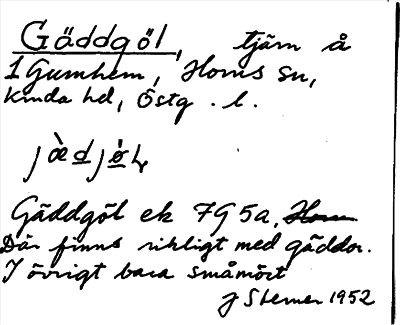 Gäddgöl, tjärn å
1 Gumhem, Horns sn,
Kinda hd, Östg. l.
Gäddgöl ek 7G 5a,
Där finns rikligt med gäddor.
I övrigt bara småmört
1952